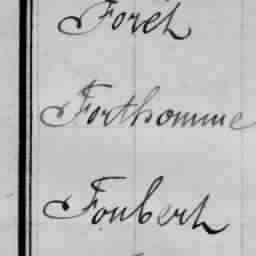 Forêt
Forthomme
Foubert